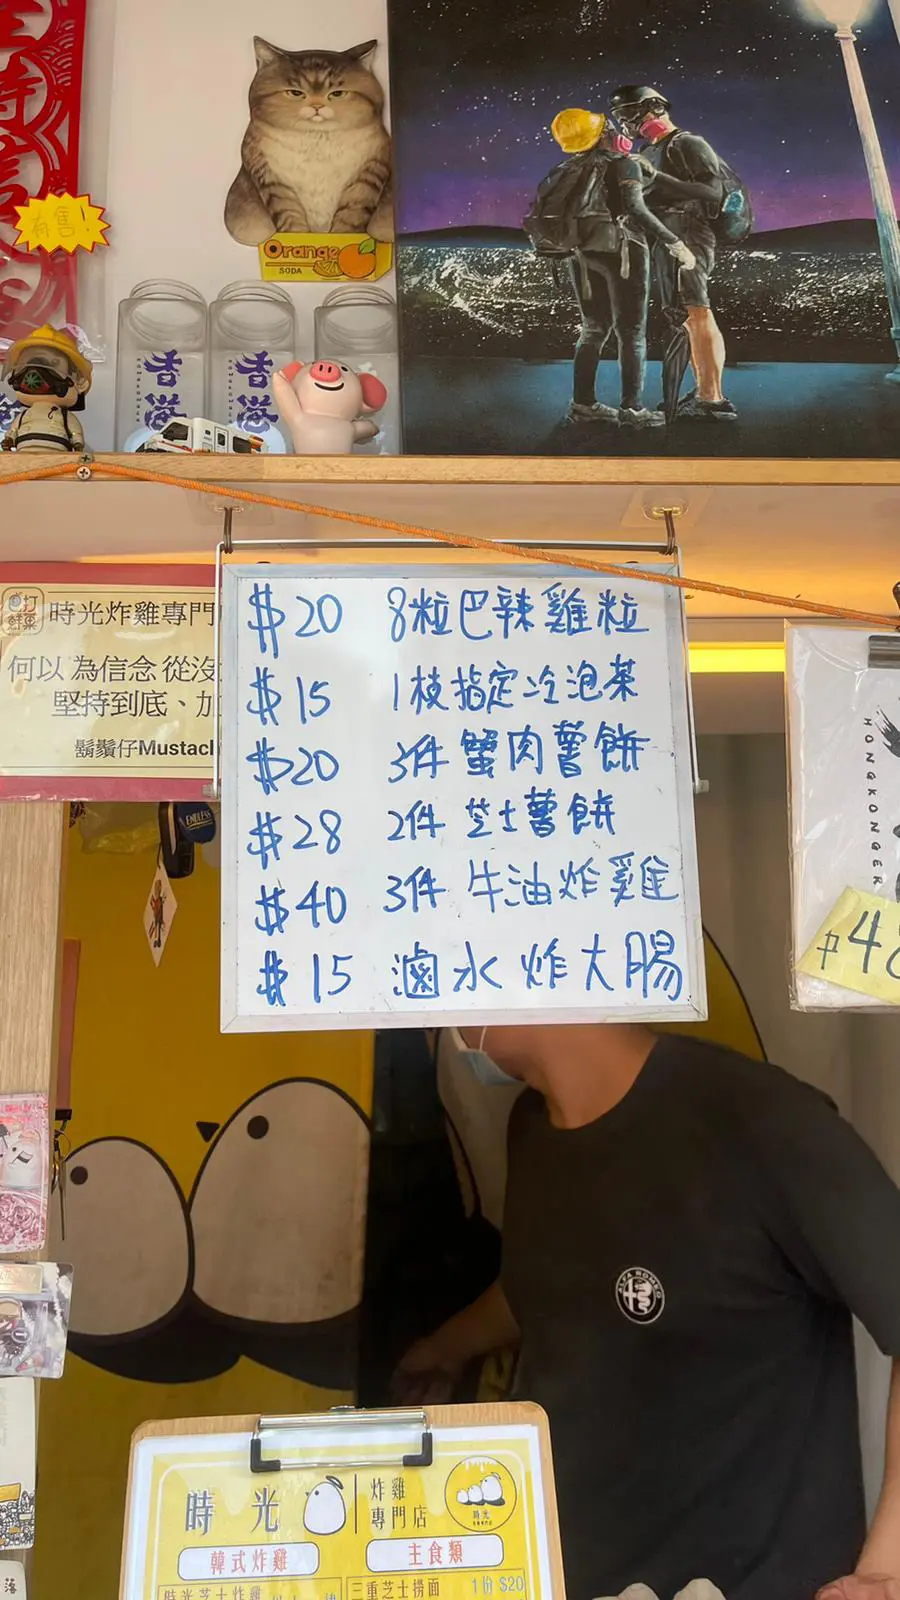 有售!
Orange
SODA
香港
香港
打
鮮果
時光炸雞專門
何以 為信念 從沒
堅持到底、加
鬍鬚仔Mustach
$20 8粒巴辣雞粒
$15 1枝指定冷泡茶
$20 3件 蟹肉薯餅
$28 2件 芝士薯餅
$40 3件 牛油炸雞
$15 滷水炸大腸
HONGKONGER
$48
ENDLESS
ALFA ROMEO
時光
炸雞
專門店
時光
韓式炸雞
主食類
時光芝士炸雞
三重芝士撈面 1份 $20
落